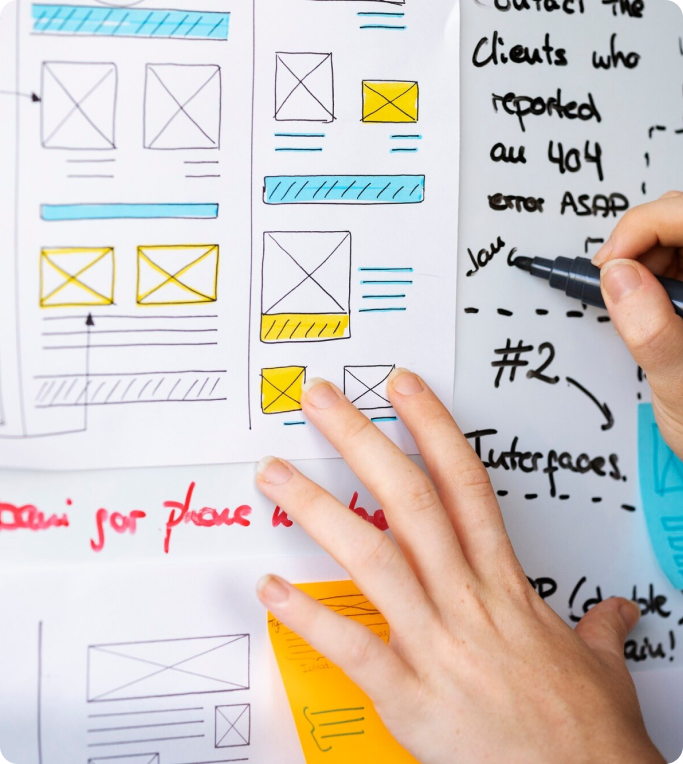 Contact the
Clients who
reported
an 404
error ASAP
Jan
#2
Interfaces.
for phone
(double